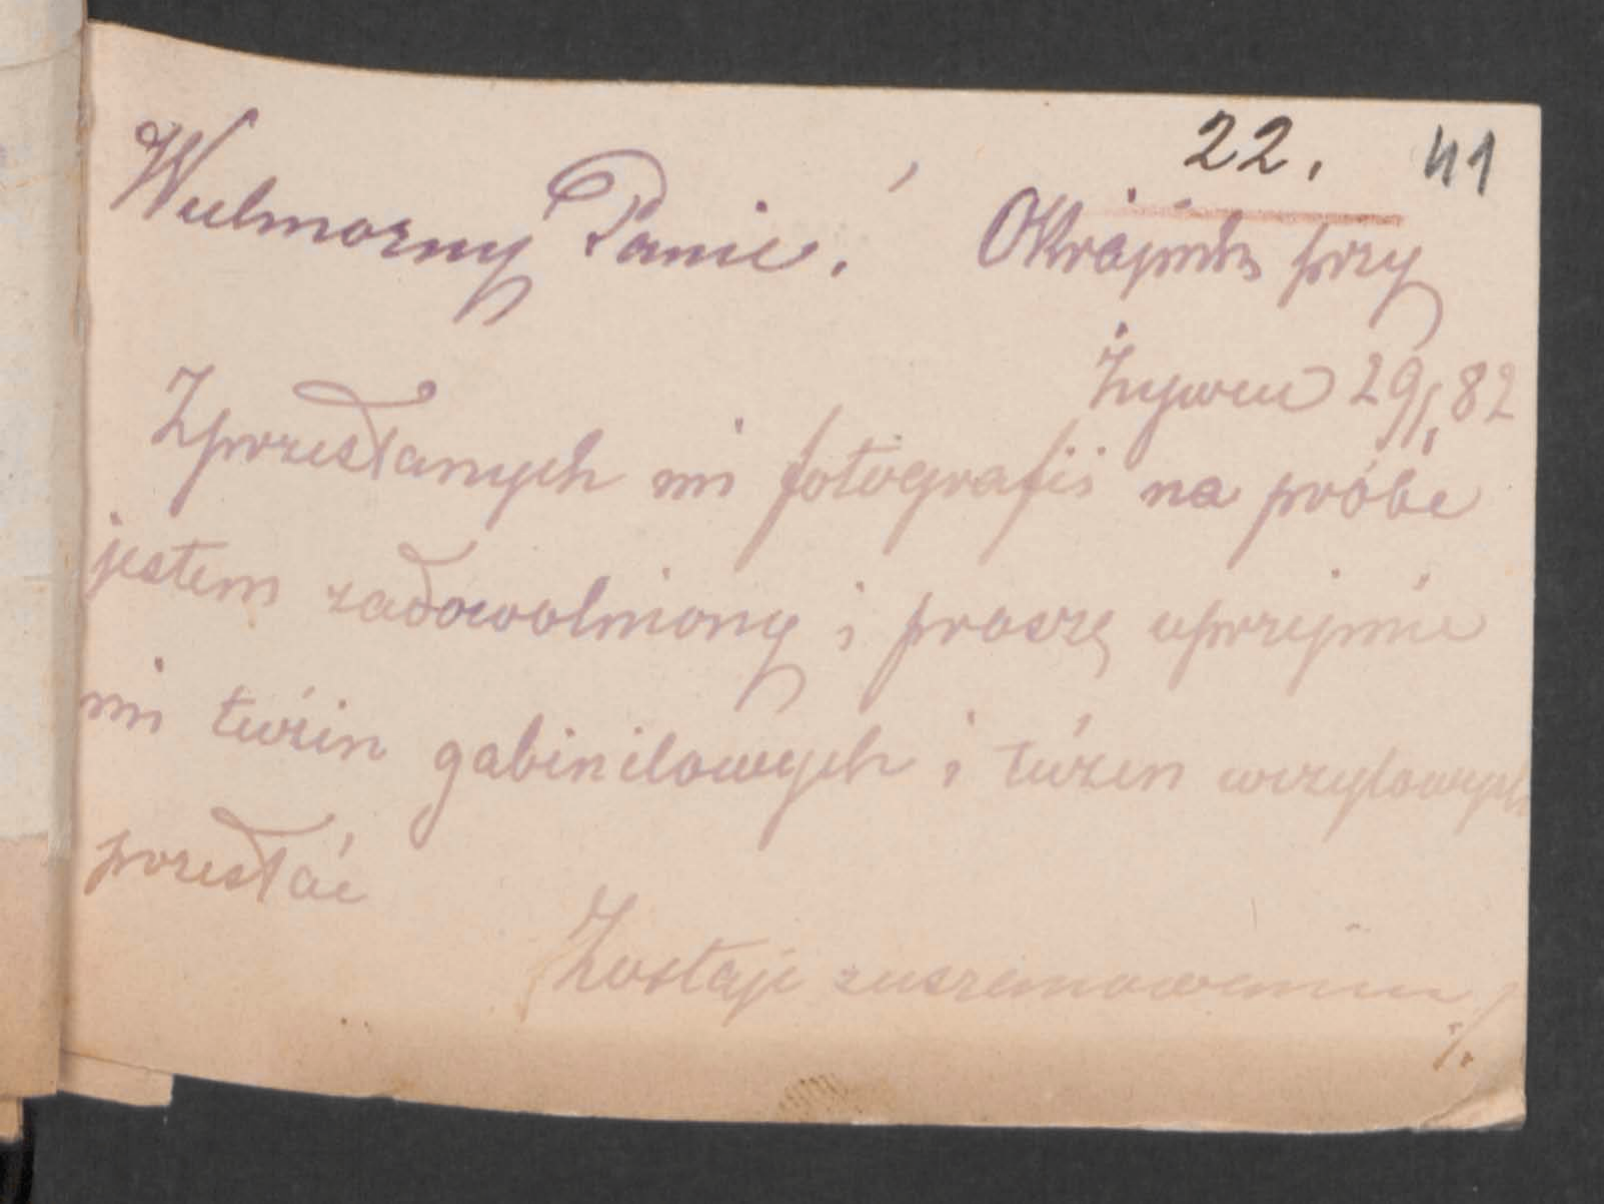 22. 41
Wielmożny Panie! Okrajnik przy
Żywcu 29/1 82
Zprzesłanych mi fotografii na próbe
jestem zadowolniony i proszę uprzejmie
mi tuzin gabinetowych i tuzin wizytowych
przesłać
Zostaje zuszanowaniem